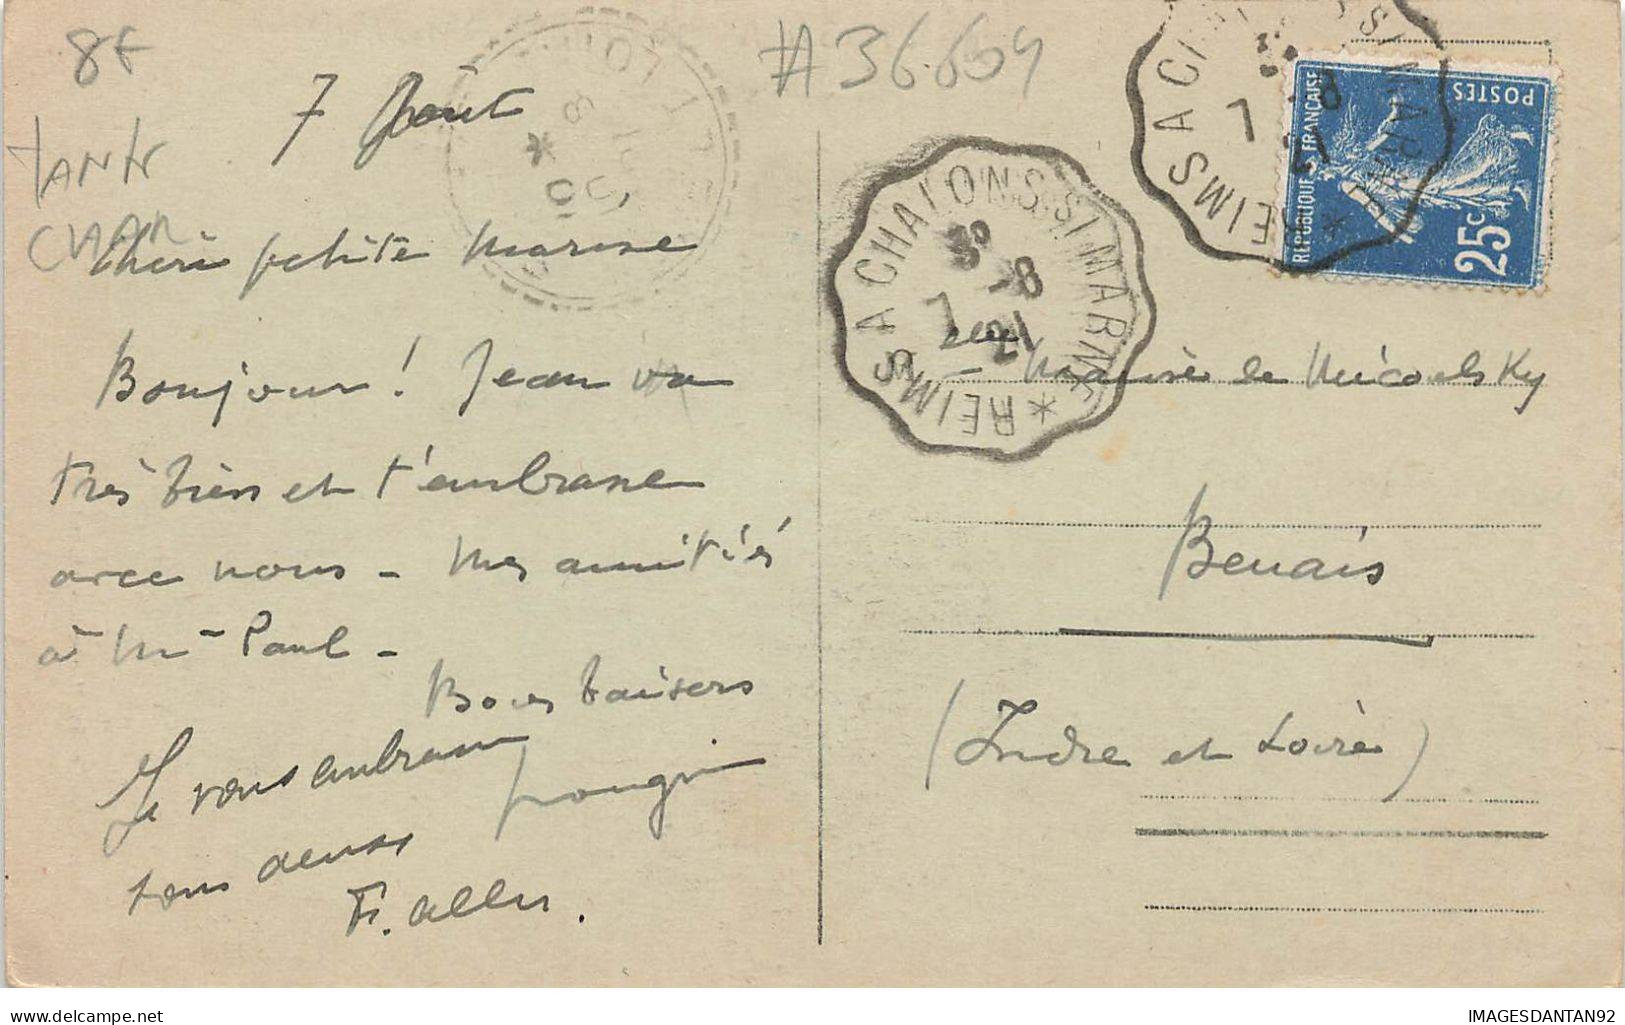 8€
#36.609
TANK
CHAR
7 Août
Chère petite Marise
Bonjour ! Jean va
très bien et t'embrasse
avec nous - Mes amitiés
à Mr Paul -
Bons baisers
Je vous embrasse
tous deux
F. Aller.
REIMS A CHALONS S/ MARNE *
7 -8
21
REIMS A CHALONS S/ MARNE *
7 -8
21
REPUBLIQUE FRANÇAISE
POSTES
25c
Melle Marise de
Benais
(Indre et Loire)
IMAGESDANTAN92
delcampe.net